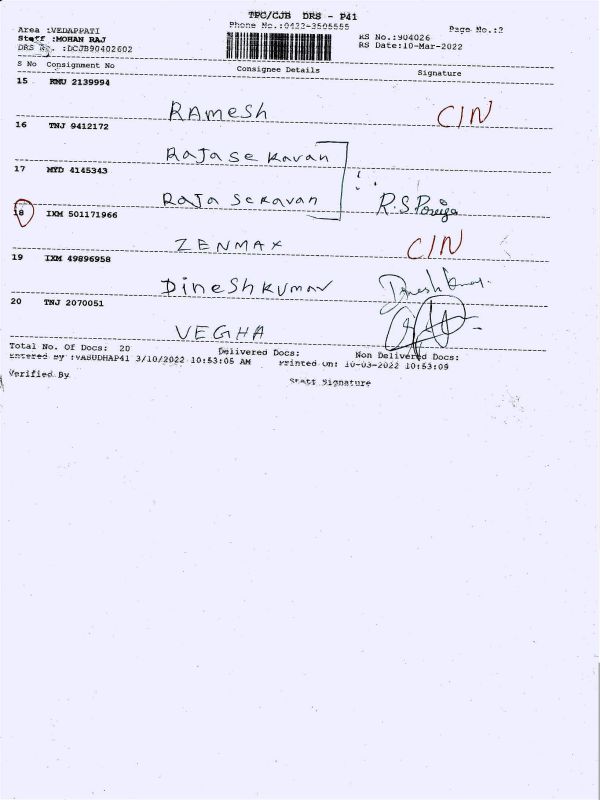 TPC/CJB DRS - P41
Phone No.:0422-3505555
Page No.:2
Area :VEDAPPATI
Staff :MOHAN RAJ
RS No.:904026
DRS No. :DCJB90402602
RS Date:10-Mar-2022
S No Consignment No Consignee Details Signature
15 RMU 2139994
RAmesh CIN
16 TNJ 9412172
RaJa Se Karan
17 MYD 4145343
RaJa SeKaran R.S.
18 IXM 501171966
ZENMAX CIN
19 IXM 49896958
DineShKumar Dinesh Kumar.
20 TNJ 2070051
VEGHA
Total No. Of Docs: 20 Delivered Docs: Non Delivered Docs:
Entered By :VASUDHAP41 3/10/2022 10:53:05 AM Printed On: 10-03-2022 10:53:09
Verified By Staff Signature